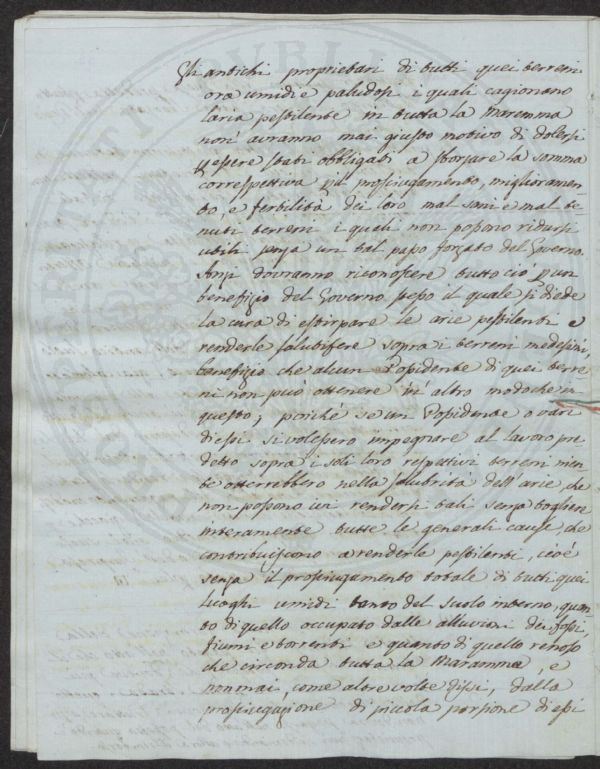 Gli antichi proprietari di tutti quei terreni
ora umidi e paludosi i quali cagionano
laria pestilente in tutta la Maremma
non' avranno mai giusto motivo di dolersi
p essere stati obbligati a sborsare la somma
correspettiva pil prosciugamento, miglioramen-
to, e fertilità dei loro mal sani e mal te-
nuti terreni i quali non possono ridursi
utili senza un tal passo forzato del Governo.
Anzi dovranno riconoscere tutto ciò p un
benefizio del Governo stesso il quale si diede
la cura di estirpare le arie pestilenti e
renderle salubifere sopra i terreni medesimi,
benefizio che alcun Possidente di quei terre-
ni non può ottenere in' altro modo che in
questo; poiché se un Possidente o vari
di essi si volessero impegnare al lavoro pre-
detto sopra i soli loro respettivi terreni nien-
te otterrebbero nella salubrità dell'arie, che
non possono ivi rendersi tali senza togliere
interamente tutte le generali cause che
contribuiscono a renderle pestilenti, cioè
senza il prosciugamento totale di tutti quei
luoghi umidi tanto del suolo interno, quan-
to di quello occupato dalle alluvioni dei fossi,
fiumi e torrenti e quanto di quello renoso
che circonda tutta la Maremma, e
non mai, come altre volte dissi, dalla
prosciugazione di piccola porzione di essi